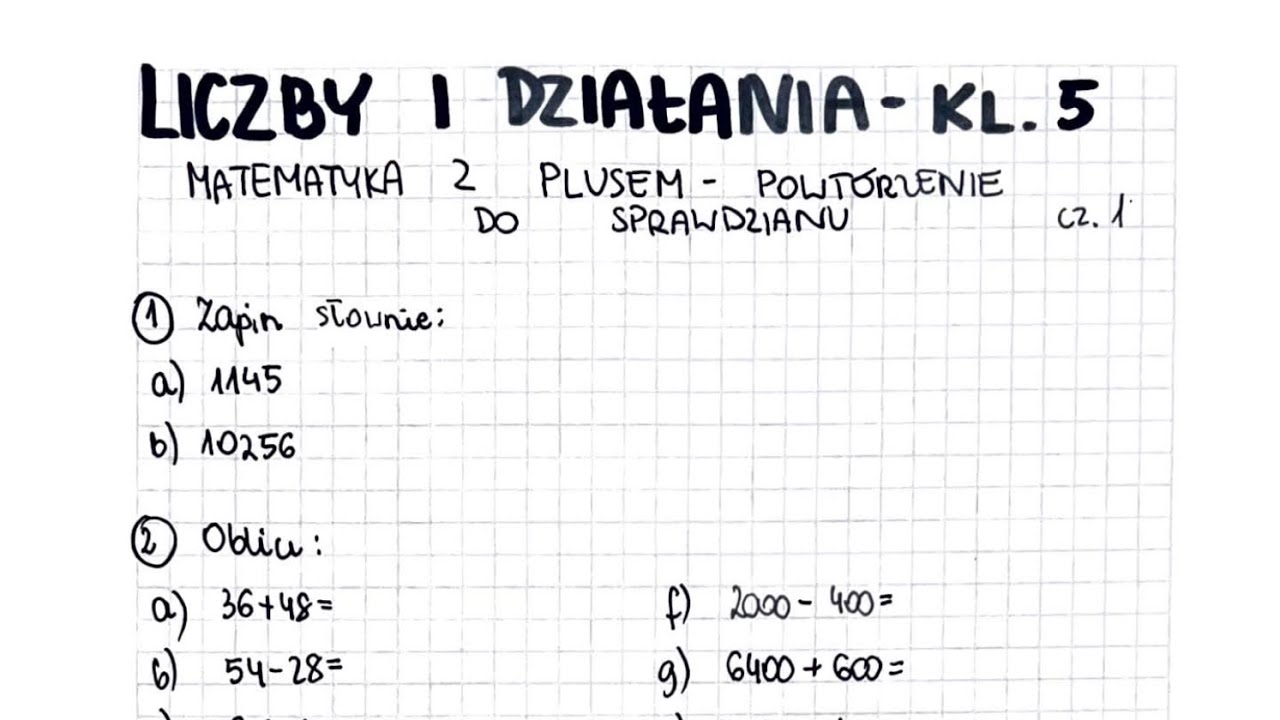 LICZBY I DZIAŁANIA - KL. 5
MATEMATYKA Z PLUSEM - POWTÓRZENIE
DO SPRAWDZIANU cz. 1
① Zapisz słownie:
a) 1145
b) 10256
② Oblicz:
a) 36+48=
b) 54-28=
f) 2000 - 400 =
g) 6400 + 600 =